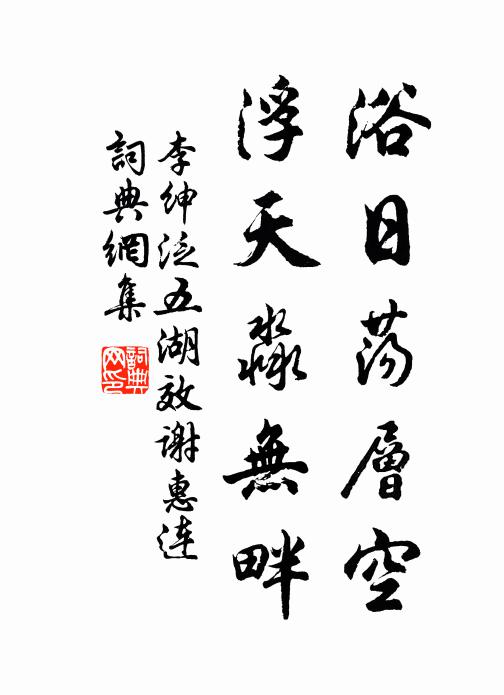 浴日蕩層空
浮天淼無畔
李紳泛五湖效謝惠连
詞典網集
詞典网印